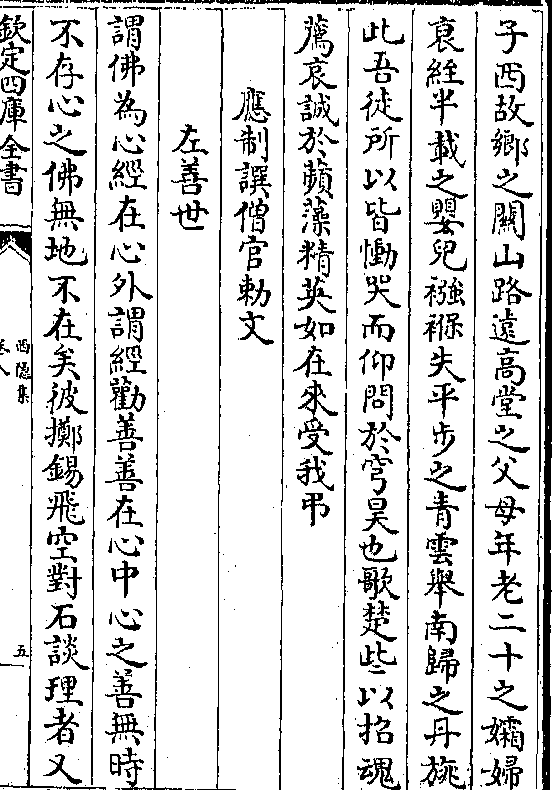 子西故鄉之關山路遠高堂之父母年老二十之孀婦
衰絰半載之嬰兒襁褓失平步之青雲舉南歸之丹旐
此吾徒所以皆慟哭而仰問於穹昊也歌楚些以招魂
薦哀誠於蘋藻精英如在來受我弔
應制譔僧官勅文
左善世
謂佛為心經在心外謂經勸善善在心中心之善無時
不存心之佛無地不在矣彼擲錫飛空對石談理者又
欽定四庫全書
西隱集
卷八
五